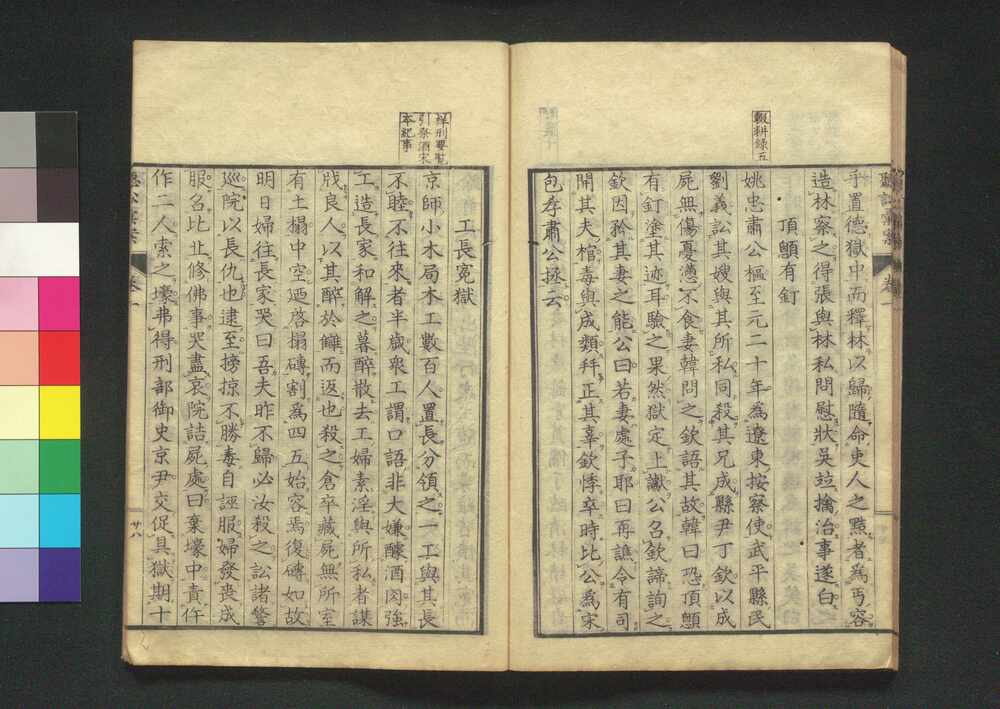 輟耕錄五
手置德獄中而釋林以歸隨命吏人之黠者爲丐容
造林察之得張與林私問慰狀吳垃擒治事遂白
頂顖有釘
姚忠肅公樞至元二十年爲遼東按察使武平縣民
劉義訟其嫂與其所私同殺其兄成縣尹丁欽以成
屍無傷憂懣不食妻韓問之欽語其故韓曰恐頂顖
有釘塗其迹耳驗之果然獄定上讞公召欽諦詢之
欽因矜其妻之能公曰若妻處子耶曰再醮令有司
開其夫棺毒與成類拜正其辜欽悸卒時比公爲宋
包孝肅公拯云
卷一
祥刑要覧
引祭酒宋
本紀事
工長寃獄
京師小木局木工數百人置長分領之一工與其長
不睦不往來者半歲衆工謂口語非大嫌醵酒肉強
工造長家和解之暮醉散去工婦素淫與所私者謀
戕良人以其醉於讎而返也殺之倉卒藏屍無所室
有土榻中空迺啓榻磚割爲四五始容焉復磚如故
明日婦往長家哭曰吾夫昨不歸必汝殺之訟諸警
巡院以長仇也逮至搒掠不勝毒自誣服婦發喪成
服召比丘修佛事哭盡哀院詰屍處曰棄壕中責仵
作二人索之壕弗得刑部御史京尹交促具獄期十
卷一
廿八